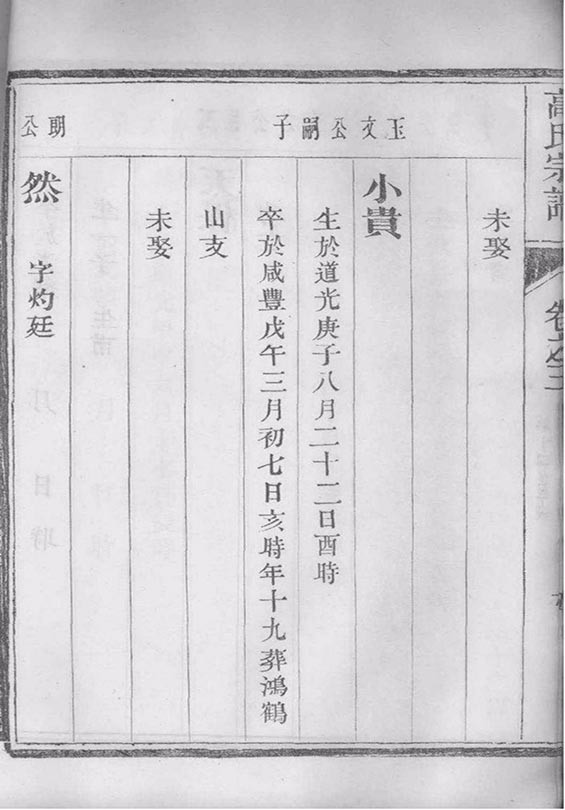 高氏宗譜
卷之三
未娶
玉文公嗣子
小貴
生於道光庚子八月二十二日酉時
卒於咸豐戊午三月初七日亥時年十九葬鴻鶴
山支
未娶
明公
然 字灼廷